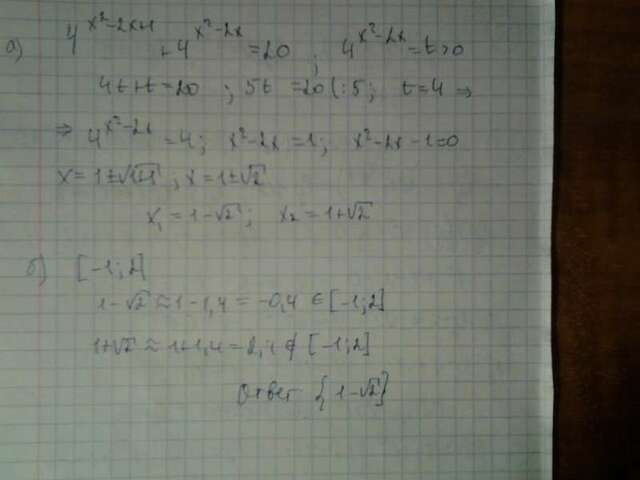 а) 4^(x²-2x+1) + 4^(x²-2x) = 20 ; 4^(x²-2x) = t > 0
4t+t=20 ; 5t =20 (:5; t=4 ⇒
⇒ 4^(x²-2x) = 4; x²-2x=1; x²-2x-1=0
x=1±√(1+1) ; x=1±√2
x₁=1-√2 ; x₂=1+√2
б) [-1;2]
1-√2 ≈ 1-1,4 = -0,4 ∈ [-1;2]
1+√2 ≈ 1+1,4 = 2,4 ∉ [-1;2]
Ответ {1-√2}